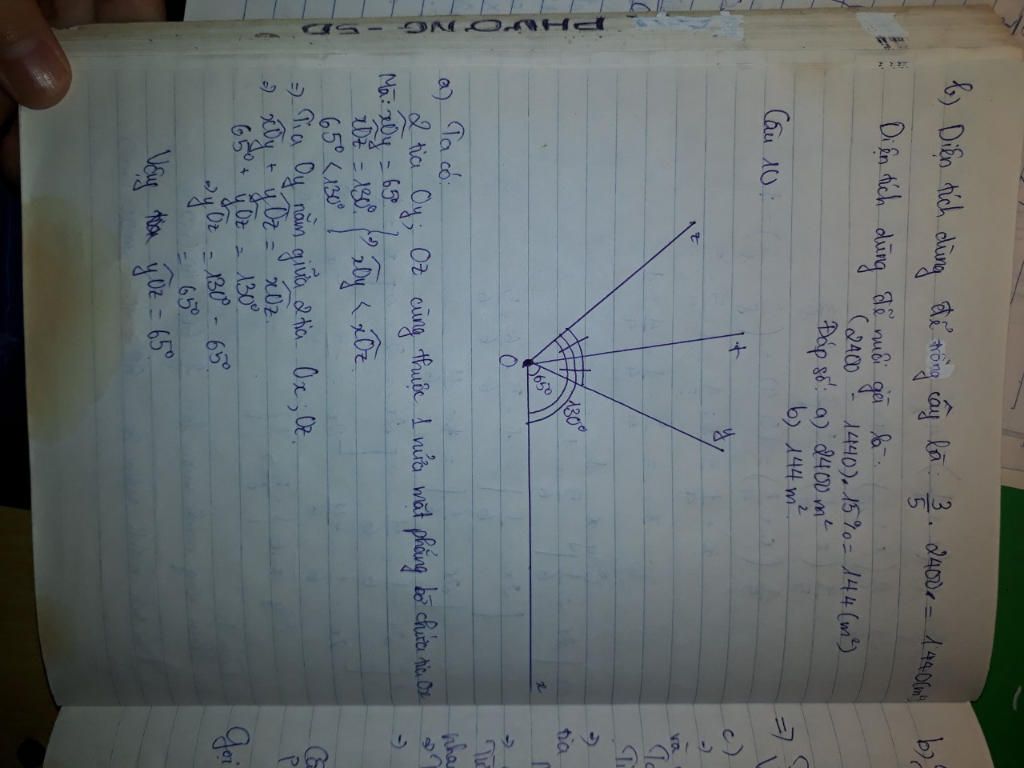 PHƯƠNG - 5D
b) Diện tích dùng để trồng cây là: 3/5 . 2400 = 1440(m²)
Diện tích dùng để nuôi gà là:
(2400 - 1440) . 15% = 144 (m²)
Đáp số: a) 2400 m²
b) 144 m²
Câu 10:
z
t
y
O
65°
130°
x
a) Ta có:
2 tia Oy; Oz cùng thuộc 1 nửa mặt phẳng bờ chứa tia Ox
Mà: xOy = 65°
xOz = 130° } => xOy < xOz
65° < 130°
=> Tia Oy nằm giữa 2 tia Ox; Oz
=> xOy + yOz = xOz
65° + yOz = 130°
=> yOz = 130° - 65°
= 65°
Vậy yOz = 65°
b)
=>
c)
và
=>
tia
=>
=>
=>
Gọi